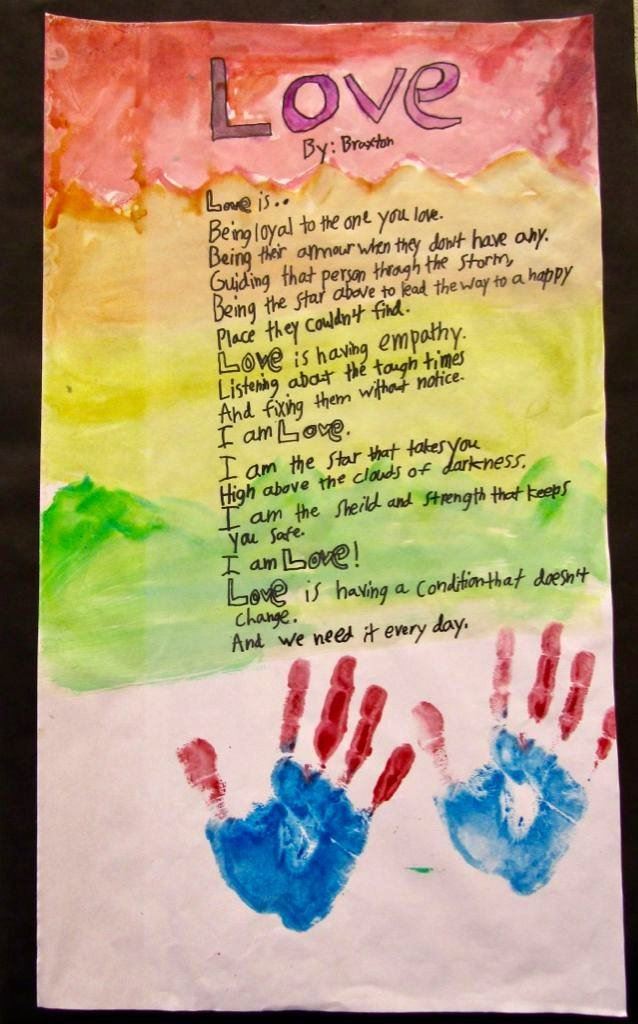 Love
By: Braxton
Love is..
Being loyal to the one you love.
Being their armour when they don't have any.
Guiding that person through the storm,
Being the star above to lead the way to a happy
Place they couldn't find.
Love is having empathy.
Listening about the tough times
And fixing them without notice.
I am Love.
I am the star that takes you
High above the clouds of darkness.
I am the sheild and strength that keeps
you safe.
I am Love!
Love is having a condition that doesn't
change.
And we need it every day.